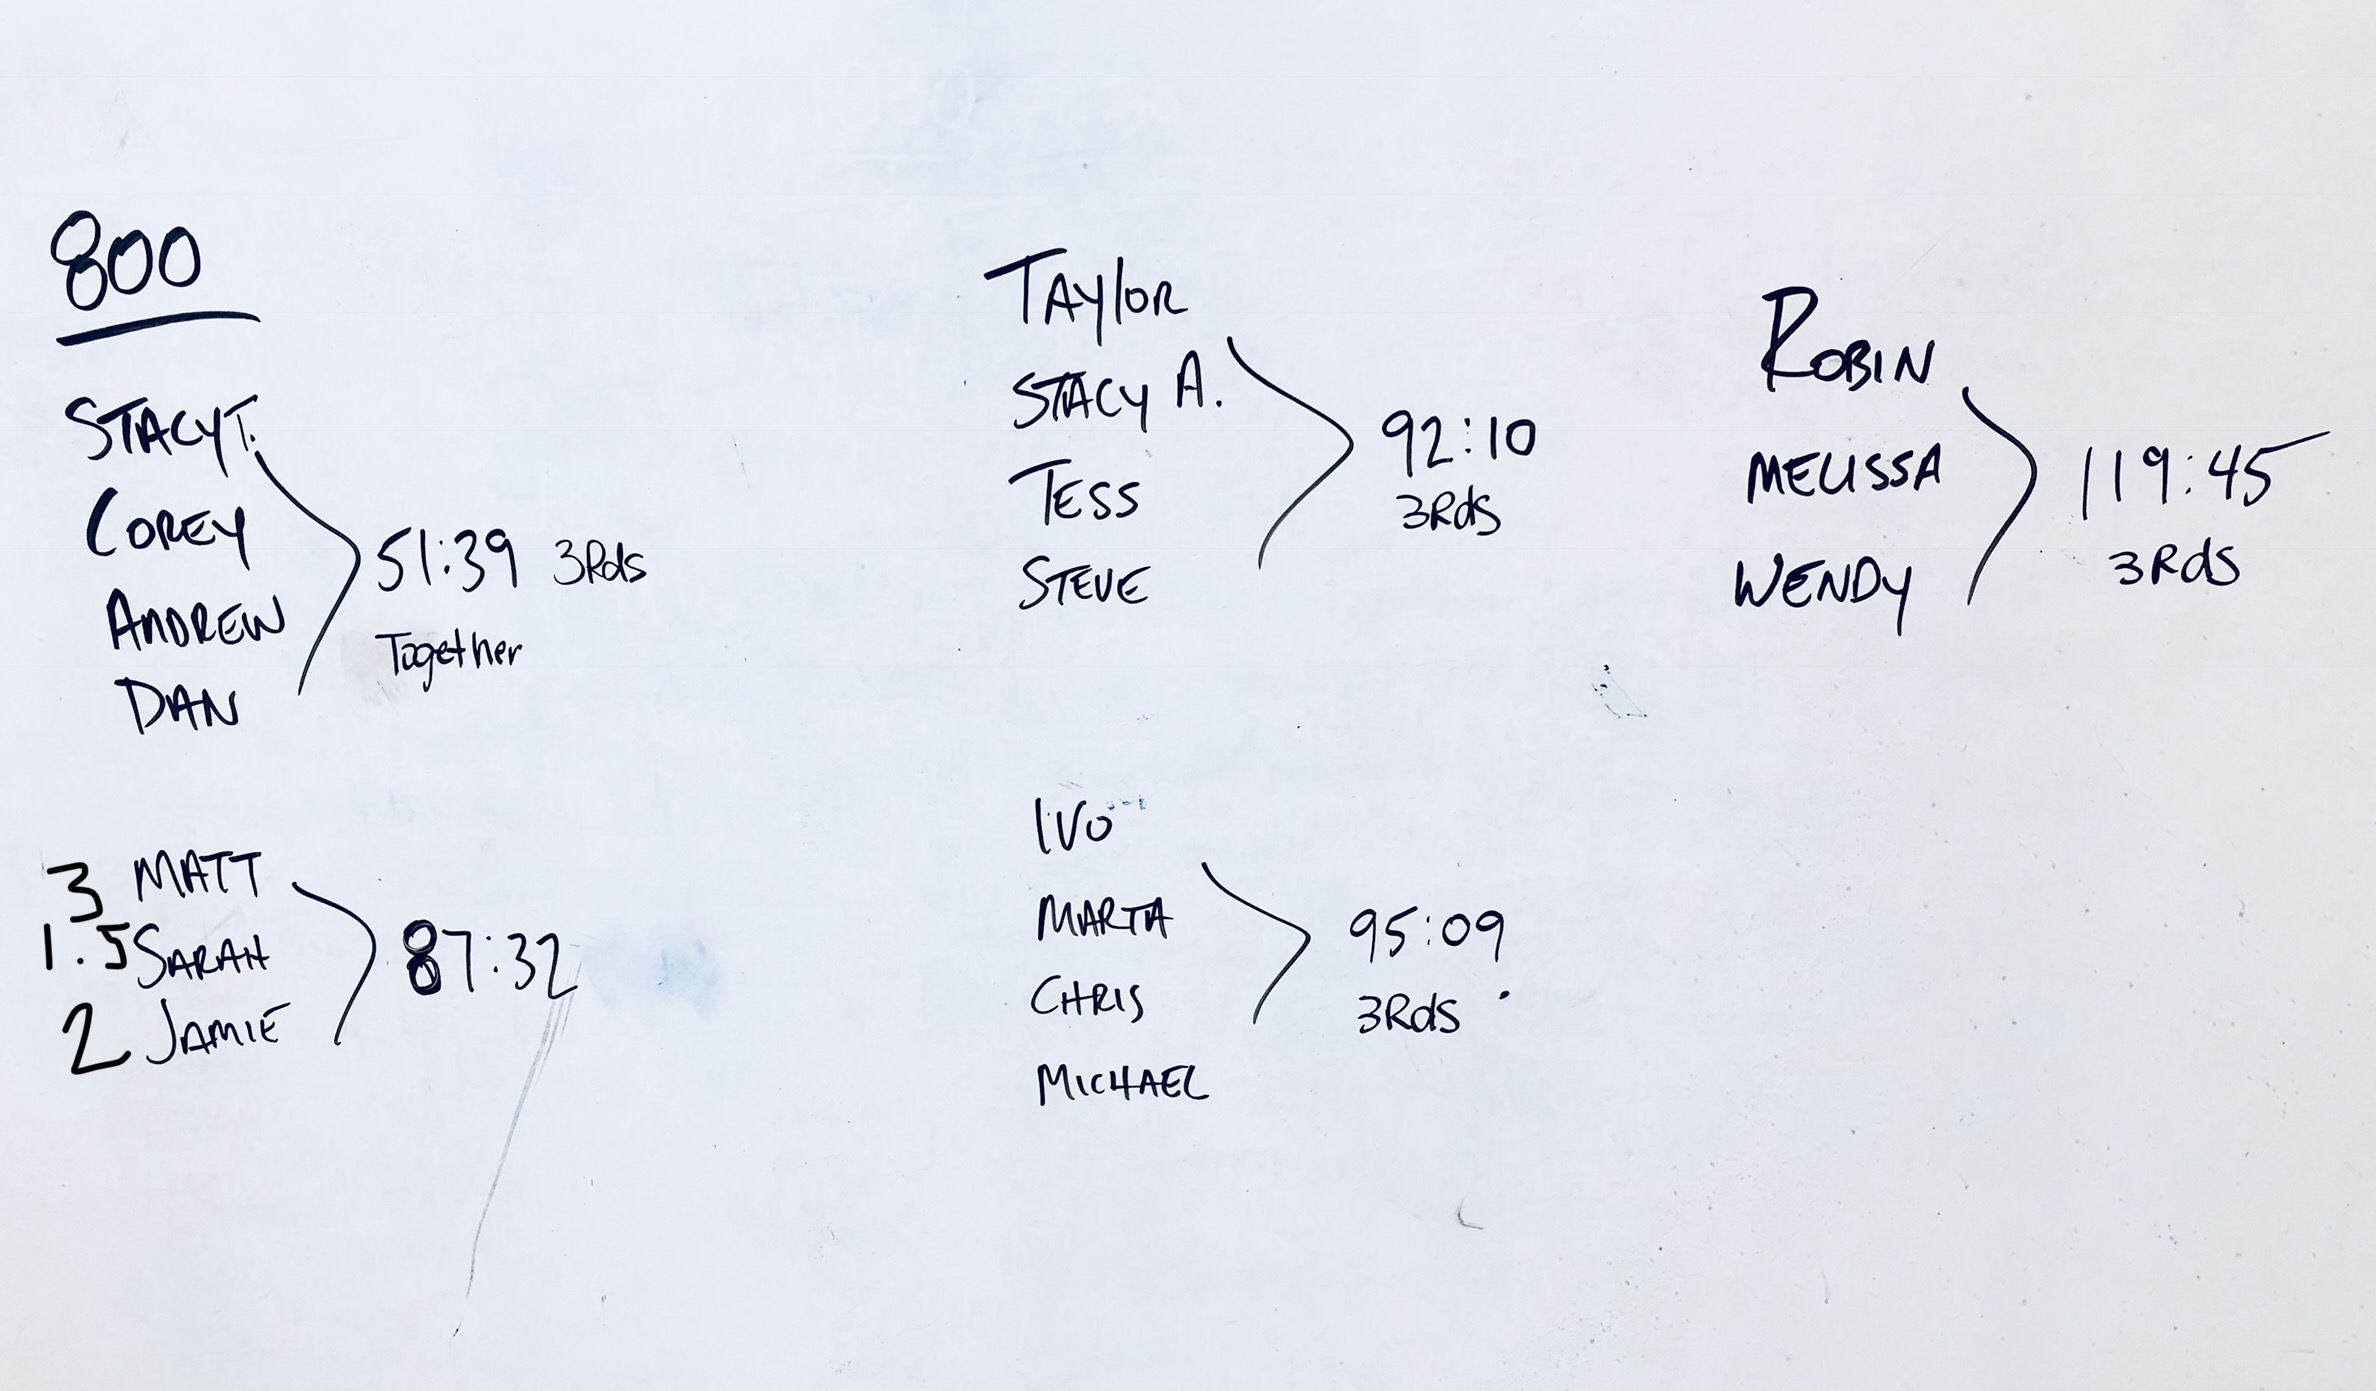 800
STACY T.
COREY
ANDREW
DAN
51:39 3Rds
Together
3 MATT
1.5 SARAH
2 JAMIE
87:32
TAylOR
STACY A.
TESS
STEVE
92:10
3Rds
IVO
MARTA
CHRIS
MICHAEL
95:09
3Rds
ROBIN
MELISSA
WENDY
119:45
3Rds